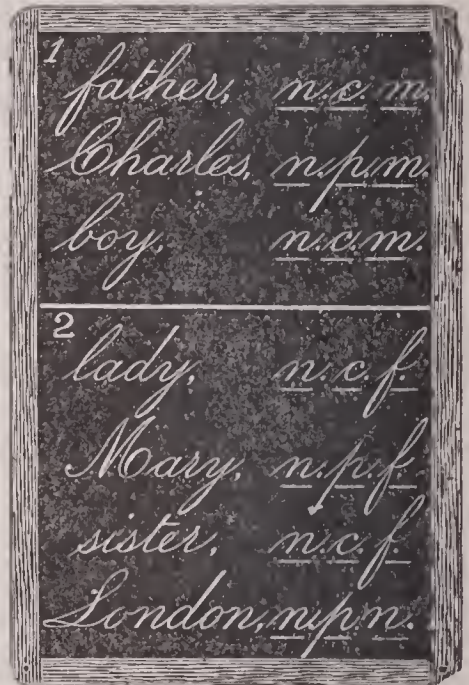 1
father, n. c. m.
Charles, n. p. m.
boy, n. c. m.
2
lady, n. c. f.
Mary, n. p. f.
sister, n. c. f.
London, n. p. n.